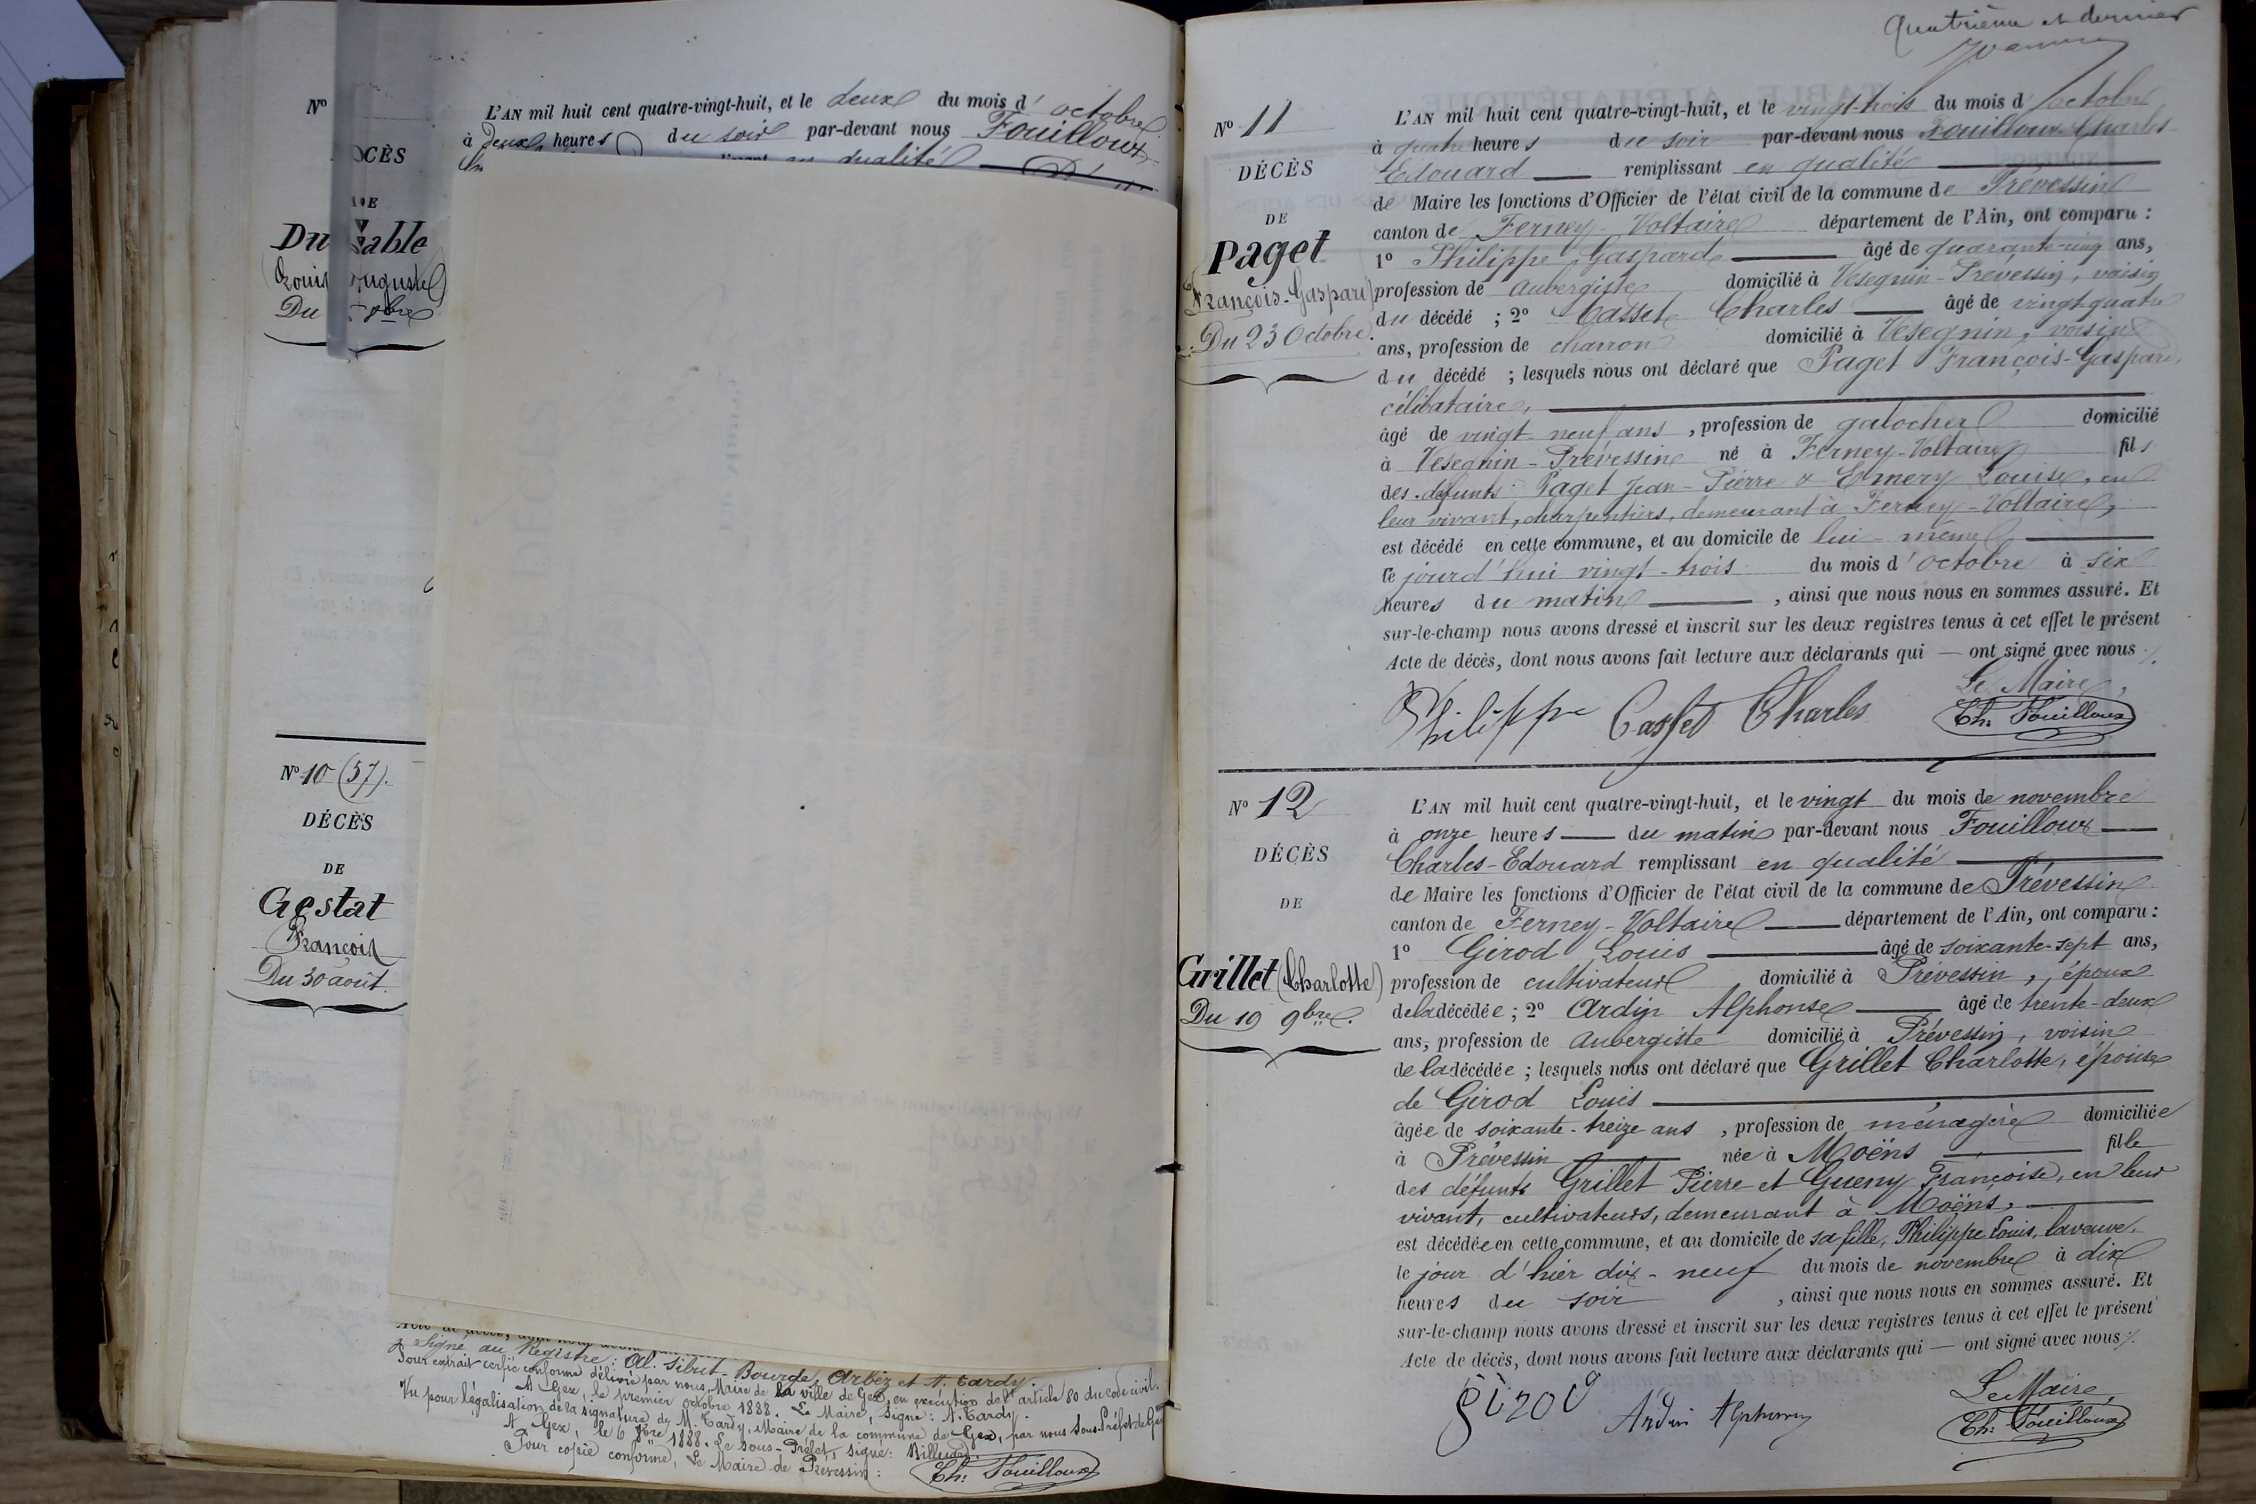 Nº
DÉCÈS
DE
Du able
Louis Auguste
Du 8bre
L'AN mil huit cent quatre-vingt-huit, et le deux du mois d'octobre
à deux heures du soir par-devant nous Fouilloux
qualité
Nº 10 (37).
DÉCÈS
DE
Gestat
François
Du 30 août.
Signé au Registre : Al. Sibut-Bourde, Arbez et A. Tardy.
Pour extrait certifié conforme délivré par nous, Maire de la ville de Gex, en exécution de l'article 80 du code civil.
A Gex, le premier octobre 1888. Le Maire, signé : A. Tardy.
Vu pour légalisation de la signature de M. Tardy, Maire de la commune de Gex, par nous Sous-Préfet de Gex
A Gex, le 6 1888. Le Sous-Préfet, signé :
Pour copie conforme, Le Maire de Prévessin :
Ch. Fouilloux
Quatrième et dernier
Nº 11
DÉCÈS
DE
Paget
(François-Gaspard)
Du 23 Octobre.
L'AN mil huit cent quatre-vingt-huit, et le vingt-trois du mois d'octobre
à quatre heures du soir par-devant nous Fouilloux Charles
Edouard remplissant en qualité
de Maire les fonctions d'Officier de l'état civil de la commune de Prévessin
canton de Ferney-Voltaire département de l'Ain, ont comparu :
1º Philippe Gaspard âgé de quarante-cinq ans,
profession de aubergiste domicilié à Vesegnin-Prévessin, voisin
du décédé ; 2º Casset Charles âgé de vingt-quatre
ans, profession de charron domicilié à Vesegnin, voisin
du décédé ; lesquels nous ont déclaré que Paget François-Gaspard,
célibataire,
âgé de vingt-neuf ans, profession de galocher domicilié
à Vesegnin-Prévessin né à Ferney-Voltaire fils
des défunts Paget Jean-Pierre & Emery Louise, en
leur vivant, charpentiers, demeurant à Ferney-Voltaire,
est décédé en cette commune, et au domicile de lui-même
ce jourd'hui vingt-trois du mois d'octobre à six
heures du matin, ainsi que nous nous en sommes assuré. Et
sur-le-champ nous avons dressé et inscrit sur les deux registres tenus à cet effet le présent
Acte de décès, dont nous avons fait lecture aux déclarants qui — ont signé avec nous.
Le Maire,
Philippe Casset Charles Ch. Fouilloux
Nº 12
DÉCÈS
DE
Grillet (Charlotte)
Du 19 9bre.
L'AN mil huit cent quatre-vingt-huit, et le vingt du mois de novembre
à onze heures du matin par-devant nous Fouilloux
Charles-Edouard remplissant en qualité
de Maire les fonctions d'Officier de l'état civil de la commune de Prévessin
canton de Ferney-Voltaire département de l'Ain, ont comparu :
1º Girod Louis âgé de soixante-sept ans,
profession de cultivateur domicilié à Prévessin, époux
de la décédée ; 2º Ardin Alphonse âgé de trente-deux
ans, profession de Aubergiste domicilié à Prévessin, voisin
de la décédée ; lesquels nous ont déclaré que Grillet Charlotte, épouse
de Girod Louis
âgée de soixante-treize ans, profession de ménagère domiciliée
à Prévessin née à Moëns fille
des défunts Grillet Pierre et Gueny Françoise, en leur
vivant, cultivateurs, demeurant à Moëns,
est décédée en cette commune, et au domicile de sa fille, Philippe Louis, la veuve,
le jour d'hier dix-neuf du mois de novembre à dix
heures du soir, ainsi que nous nous en sommes assuré. Et
sur-le-champ nous avons dressé et inscrit sur les deux registres tenus à cet effet le présent
Acte de décès, dont nous avons fait lecture aux déclarants qui — ont signé avec nous.
Le Maire,
girod Ardin Alphonse Ch. Fouilloux